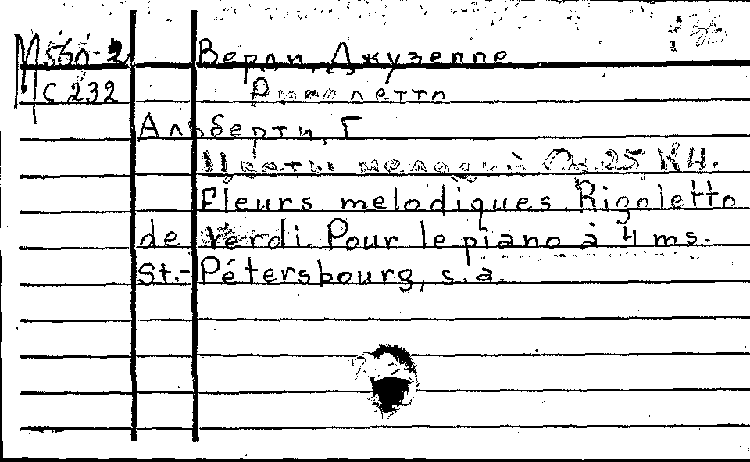 М560-2 Верди, Джузеппе
С 232 Риголетто
Альберти, Г
Цветы мелодий Op. 25 К4.
Fleurs melodiques Rigoletto
de Verdi. Pour le piano à 4 ms.
St.-Pétersbourg, s.a.